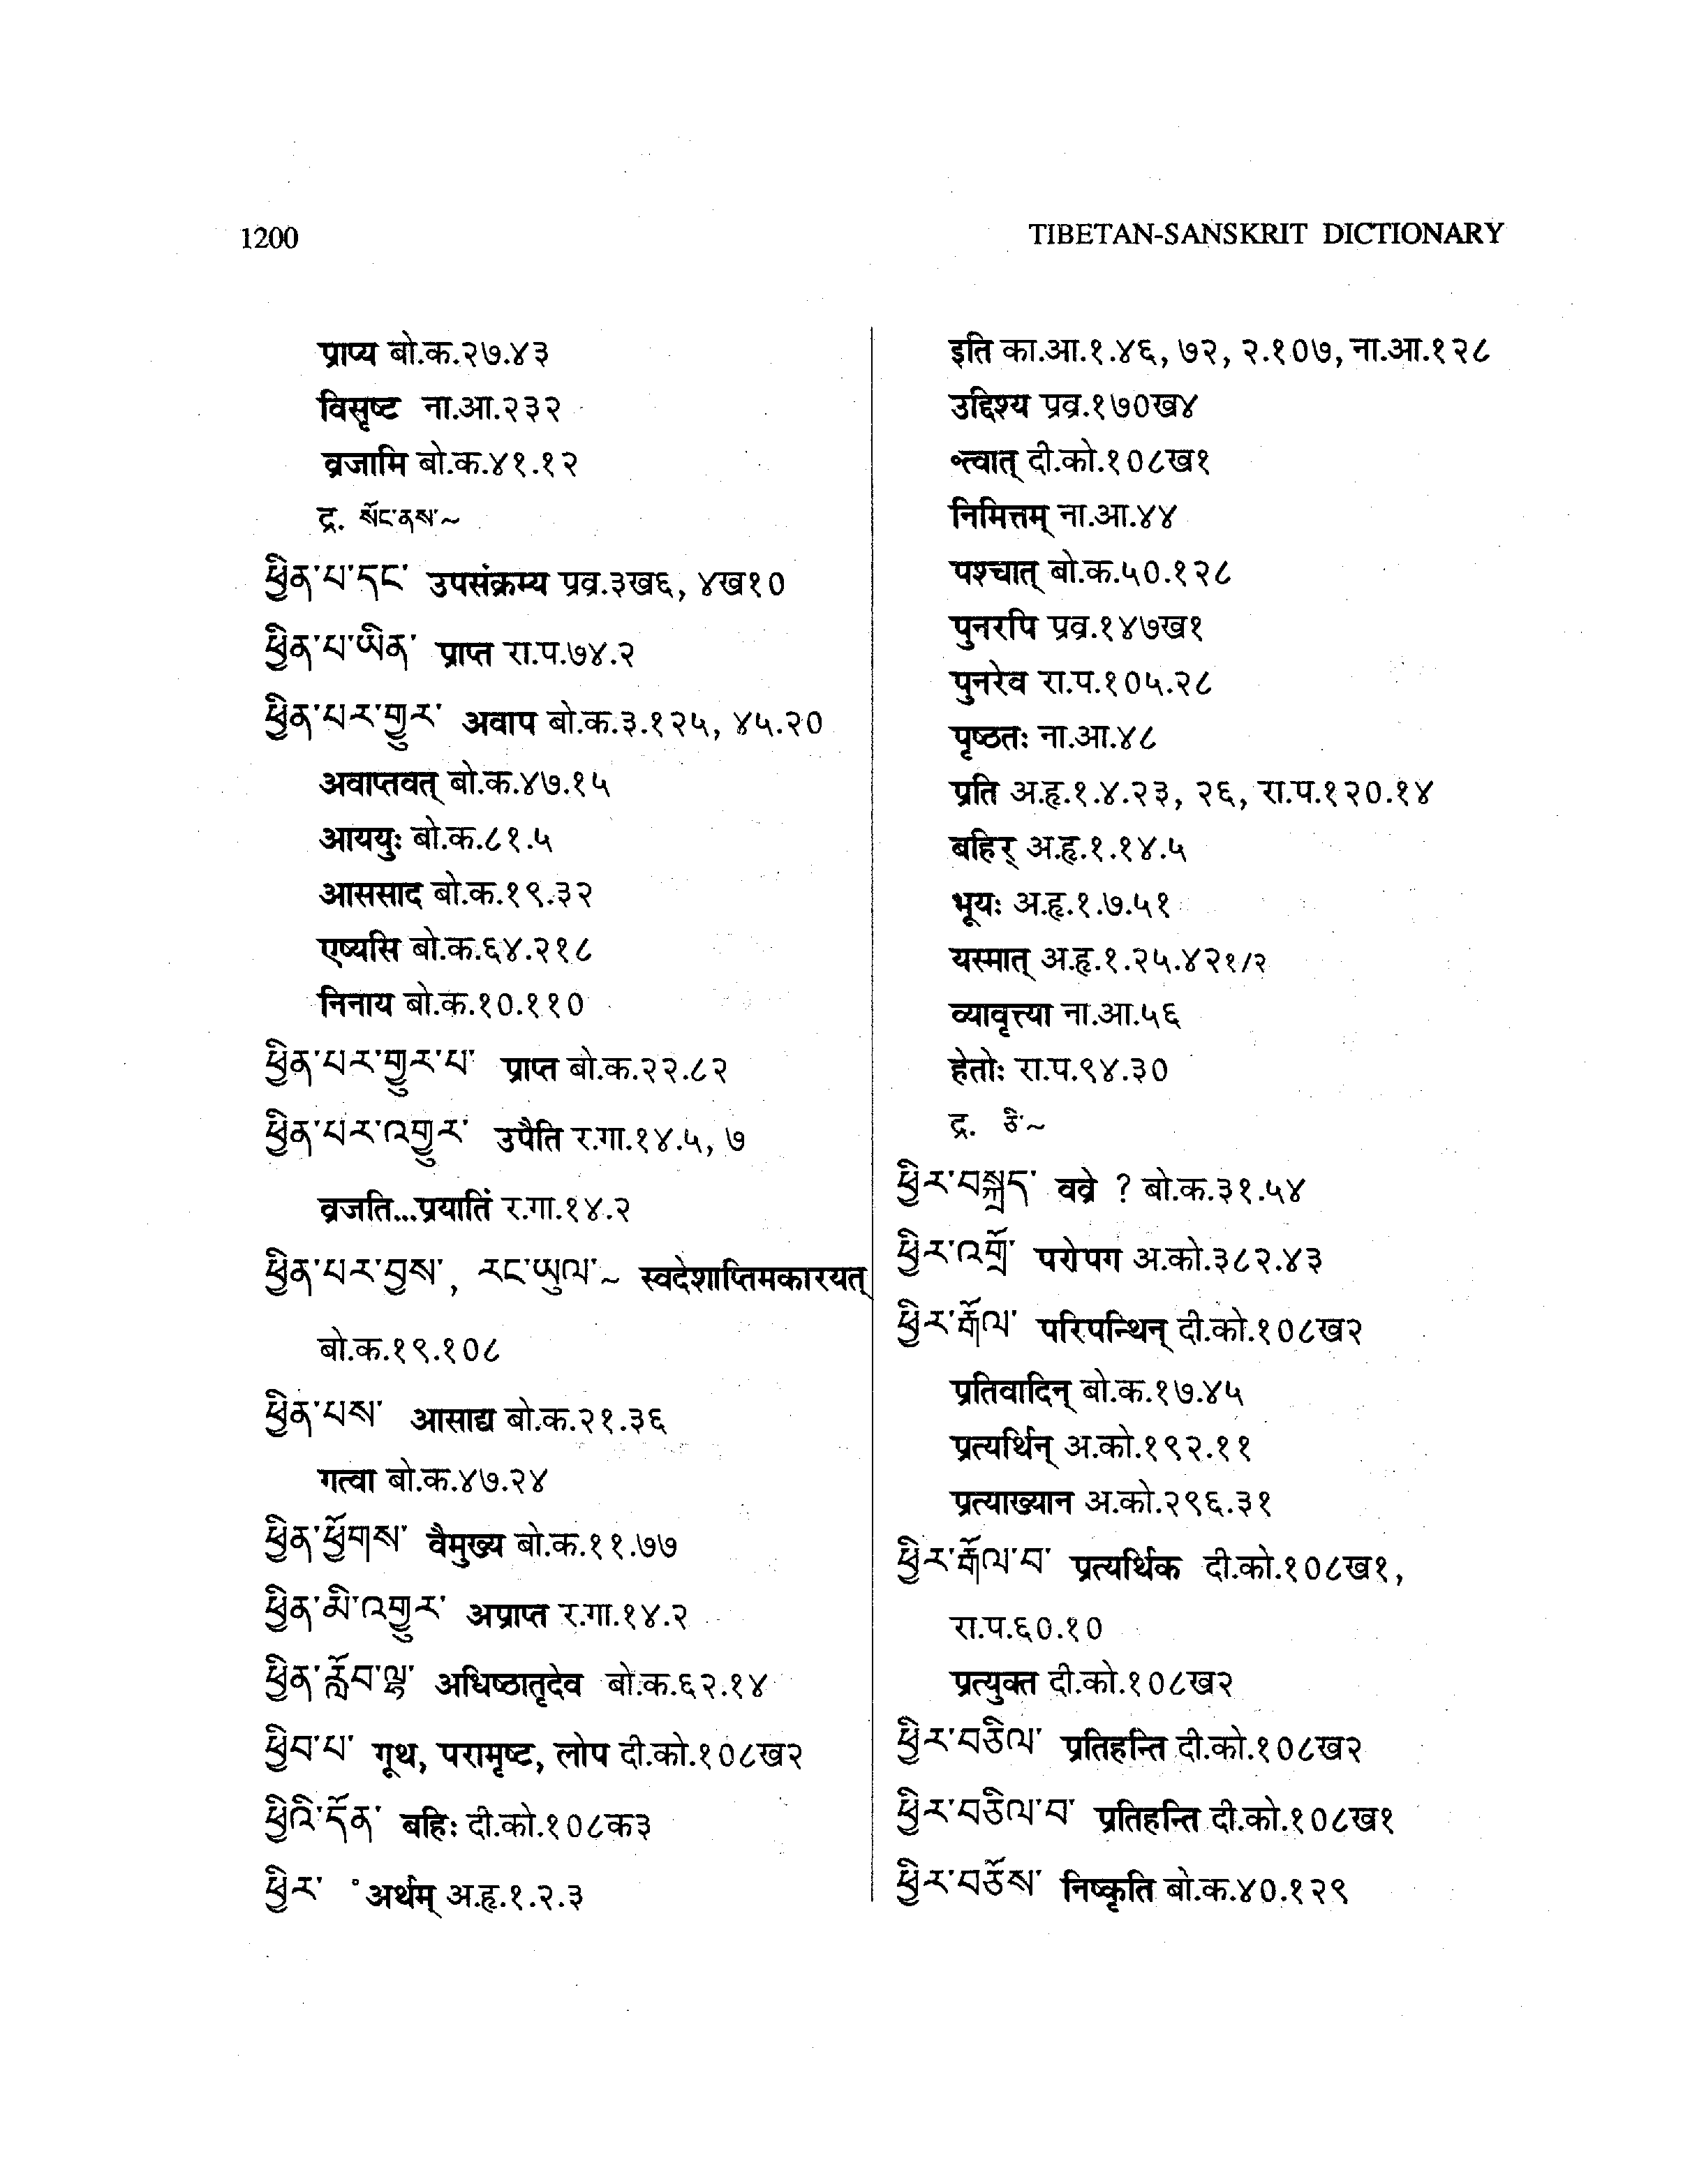 1200
TIBETAN-SANSKRIT DICTIONARY
प्राप्य बो.क.२७.४३
विसृष्ट ना.आ.२३२
व्रजामि बो.क.४१.१२
द्र. སོང་ནས་~
ཕྱིན་པ་དང་ उपसंक्रम्य प्रव्र.३ख६, ४ख१०
ཕྱིན་པ་ཡིན་ प्राप्त रा.प.७४.२
ཕྱིན་པར་གྱུར་ अवाप बो.क.३.१२५, ४५.२०
अवाप्तवत् बो.क.४७.१५
आययुः बो.क.८१.५
आससाद बो.क.१९.३२
एष्यसि बो.क.६४.२१८
निनाय बो.क.१०.११०
ཕྱིན་པར་གྱུར་པ་ प्राप्त बो.क.२२.८२
ཕྱིན་པར་འགྱུར་ उपैति र.गा.१४.५, ७
व्रजति...प्रयातिं र.गा.१४.२
ཕྱིན་པར་བྱས་, རང་ཡུལ་~ स्वदेशाप्तिमकारयत्
बो.क.१९.१०८
ཕྱིན་པས་ आसाद्य बो.क.२१.३६
गत्वा बो.क.४७.२४
ཕྱིན་ཕྱོགས་ वैमुख्य बो.क.११.७७
ཕྱིན་མི་འགྱུར་ अप्राप्त र.गा.१४.२
ཕྱིན་རློབ་ལྷ་ अधिष्ठातृदेव बो.क.६२.१४
ཕྱིབ་པ་ गूथ, परामृष्ट, लोप दी.को.१०८ख२
ཕྱིའི་དོན་ बहिः दी.को.१०८क३
ཕྱིར་ ॰अर्थम् अ.हृ.१.२.३
इति का.आ.१.४६, ७२, २.१०७, ना.आ.१२८
उद्दिश्य प्रव्र.१७०ख४
॰त्वात् दी.को.१०८ख१
निमित्तम् ना.आ.४४
पश्चात् बो.क.५०.१२८
पुनरपि प्रव्र.१४७ख१
पुनरेव रा.प.१०५.२८
पृष्ठतः ना.आ.४८
प्रति अ.हृ.१.४.२३, २६, रा.प.१२०.१४
बहिर् अ.हृ.१.१४.५
भूयः अ.हृ.१.७.५१
यस्मात् अ.हृ.१.२५.४२१/२
व्यावृत्त्या ना.आ.५६
हेतोः रा.प.९४.३०
द्र. ཅི་~
ཕྱིར་བསྐྲད་ वव्रे ? बो.क.३१.५४
ཕྱིར་འགྲོ་ परोपग अ.को.३८२.४३
ཕྱིར་རྒོལ་ परिपन्थिन् दी.को.१०८ख२
प्रतिवादिन् बो.क.१७.४५
प्रत्यर्थिन् अ.को.१९२.११
प्रत्याख्यान अ.को.२९६.३१
ཕྱིར་རྒོལ་བ་ प्रत्यर्थिक दी.को.१०८ख१,
रा.प.६०.१०
प्रत्युक्त दी.को.१०८ख२
ཕྱིར་བཅིལ་ प्रतिहन्ति दी.को.१०८ख२
ཕྱིར་བཅིལ་བ་ प्रतिहन्ति दी.को.१०८ख१
ཕྱིར་བཅོས་ निष्कृति बो.क.४०.१२९